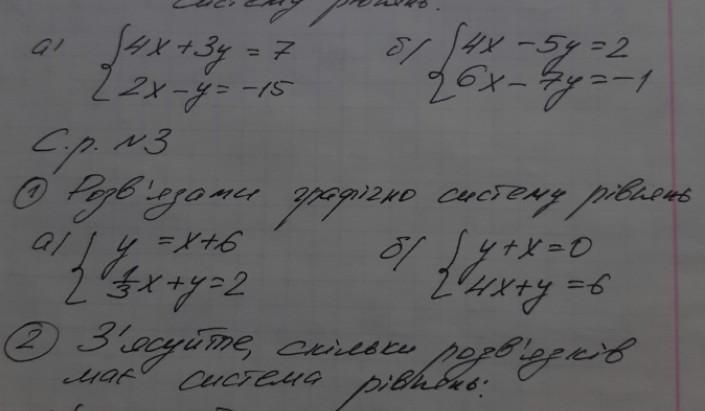 систему рівнянь.
а) { 4x + 3y = 7 б) { 4x - 5y = 2
2x - y = -15 6x - 7y = -1
С.р. №3
① Розв'язати графічно систему рівнянь
а) { y = x+6 б) { y + x = 0
1/3 x + y = 2 4x + y = 6
② З'ясуйте, скільки розв'язків
має система рівнянь: